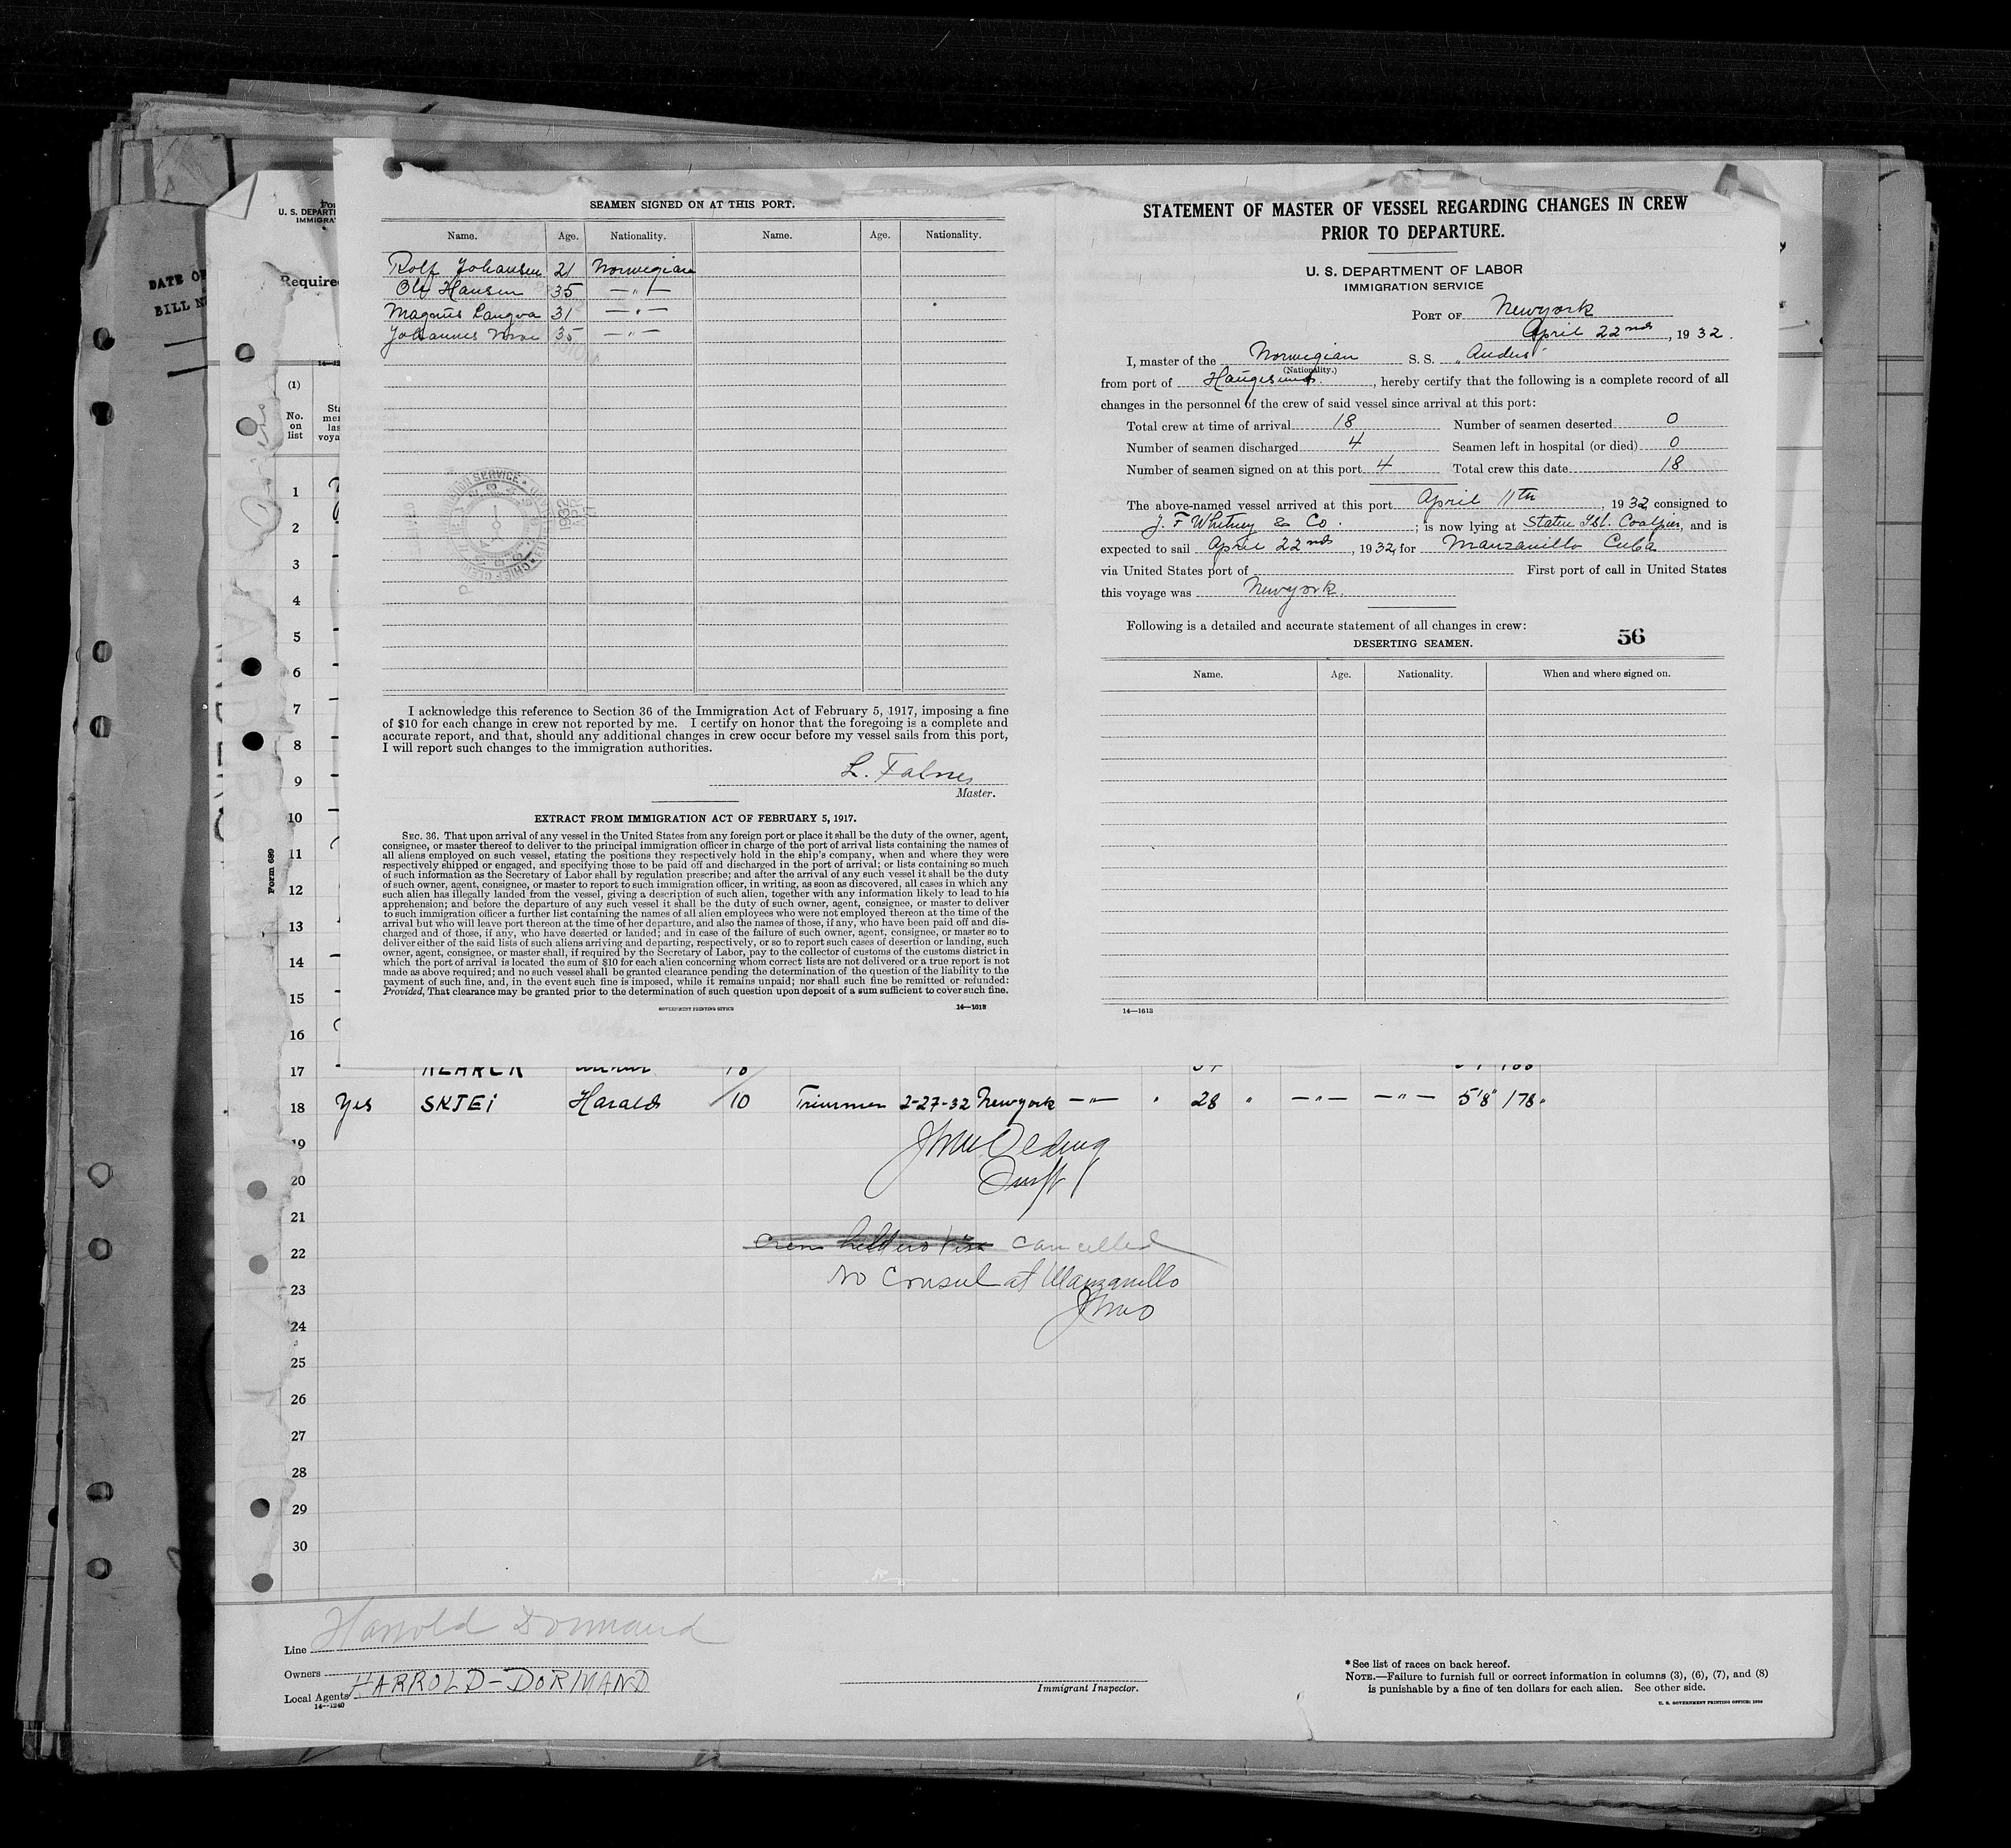 SEAMEN SIGNED ON AT THIS PORT.
Name. Age. Nationality. Name. Age. Nationality.
Rolf Johansen 21 Norwegian
Olf Hansen 35 —"—
Magnus Langva 31 —"—
Johannes 35 —"—
I acknowledge this reference to Section 36 of the Immigration Act of February 5, 1917, imposing a fine
of $10 for each change in crew not reported by me. I certify on honor that the foregoing is a complete and
accurate report, and that, should any additional changes in crew occur before my vessel sails from this port,
I will report such changes to the immigration authorities.
L. Falnes
Master.
EXTRACT FROM IMMIGRATION ACT OF FEBRUARY 5, 1917.
SEC. 36. That upon arrival of any vessel in the United States from any foreign port or place it shall be the duty of the owner, agent,
consignee, or master thereof to deliver to the principal immigration officer in charge of the port of arrival lists containing the names of
all aliens employed on such vessel, stating the positions they respectively hold in the ship's company, when and where they were
respectively shipped or engaged, and specifying those to be paid off and discharged in the port of arrival; or lists containing so much
of such information as the Secretary of Labor shall by regulation prescribe; and after the arrival of any such vessel it shall be the duty
of such owner, agent, consignee, or master to report to such immigration officer, in writing, as soon as discovered, all cases in which any
such alien has illegally landed from the vessel, giving a description of such alien, together with any information likely to lead to his
apprehension; and before the departure of any such vessel it shall be the duty of such owner, agent, consignee, or master to deliver
to such immigration officer a further list containing the names of all alien employees who were not employed thereon at the time of the
arrival but who will leave port thereon at the time of her departure, and also the names of those, if any, who have been paid off and dis-
charged and of those, if any, who have deserted or landed; and in case of the failure of such owner, agent, consignee, or master so to
deliver either of the said lists of such aliens arriving and departing, respectively, or so to report such cases of desertion or landing, such
owner, agent, consignee, or master shall, if required by the Secretary of Labor, pay to the collector of customs of the customs district in
which the port of arrival is located the sum of $10 for each alien concerning whom correct lists are not delivered or a true report is not
made as above required; and no such vessel shall be granted clearance pending the determination of the question of the liability to the
payment of such fine, and, in the event such fine is imposed, while it remains unpaid; nor shall such fine be remitted or refunded:
Provided, That clearance may be granted prior to the determination of such question upon deposit of a sum sufficient to cover such fine.
GOVERNMENT PRINTING OFFICE 14—1613
STATEMENT OF MASTER OF VESSEL REGARDING CHANGES IN CREW
PRIOR TO DEPARTURE.
U. S. DEPARTMENT OF LABOR
IMMIGRATION SERVICE
PORT OF Newyork
April 22nd, 1932.
I, master of the Norwegian S. S. "Anders"
(Nationality.)
from port of Haugesund, hereby certify that the following is a complete record of all
changes in the personnel of the crew of said vessel since arrival at this port:
Total crew at time of arrival 18 Number of seamen deserted 0
Number of seamen discharged 4 Seamen left in hospital (or died) 0
Number of seamen signed on at this port 4 Total crew this date 18
The above-named vessel arrived at this port April 11th, 1932, consigned to
J. F Whitney & Co.; is now lying at Staten Isl. Coalpier, and is
expected to sail April 22nd, 1932, for Manzanillo Cuba
via United States port of First port of call in United States
this voyage was Newyork.
Following is a detailed and accurate statement of all changes in crew:
56
DESERTING SEAMEN.
Name. Age. Nationality. When and where signed on.
14—1613
DATE OF
BILL N
U. S. DEPARTI
IMMIGRA
Require
(1)
No.
on
list
Form 689
1
2
3
4
5
6
7
8
9
10
11
12
13
14
15
16
17
18 Yes SKJEI Harald 10 Trimmer 2-27-32 Newyork —"— " 28 " —"— —"— 5'8" 178"
19
20
21
22 crew held no visa cancelled
23 No Consul at Manzanillo
24
25
26
27
28
29
30
Line Harrold Dormand
Owners
Local Agents HARROLD-DORMAND
14—1240
Immigrant Inspector.
* See list of races on back hereof.
NOTE.—Failure to furnish full or correct information in columns (3), (6), (7), and (8)
is punishable by a fine of ten dollars for each alien. See other side.
U. S. GOVERNMENT PRINTING OFFICE: 1930